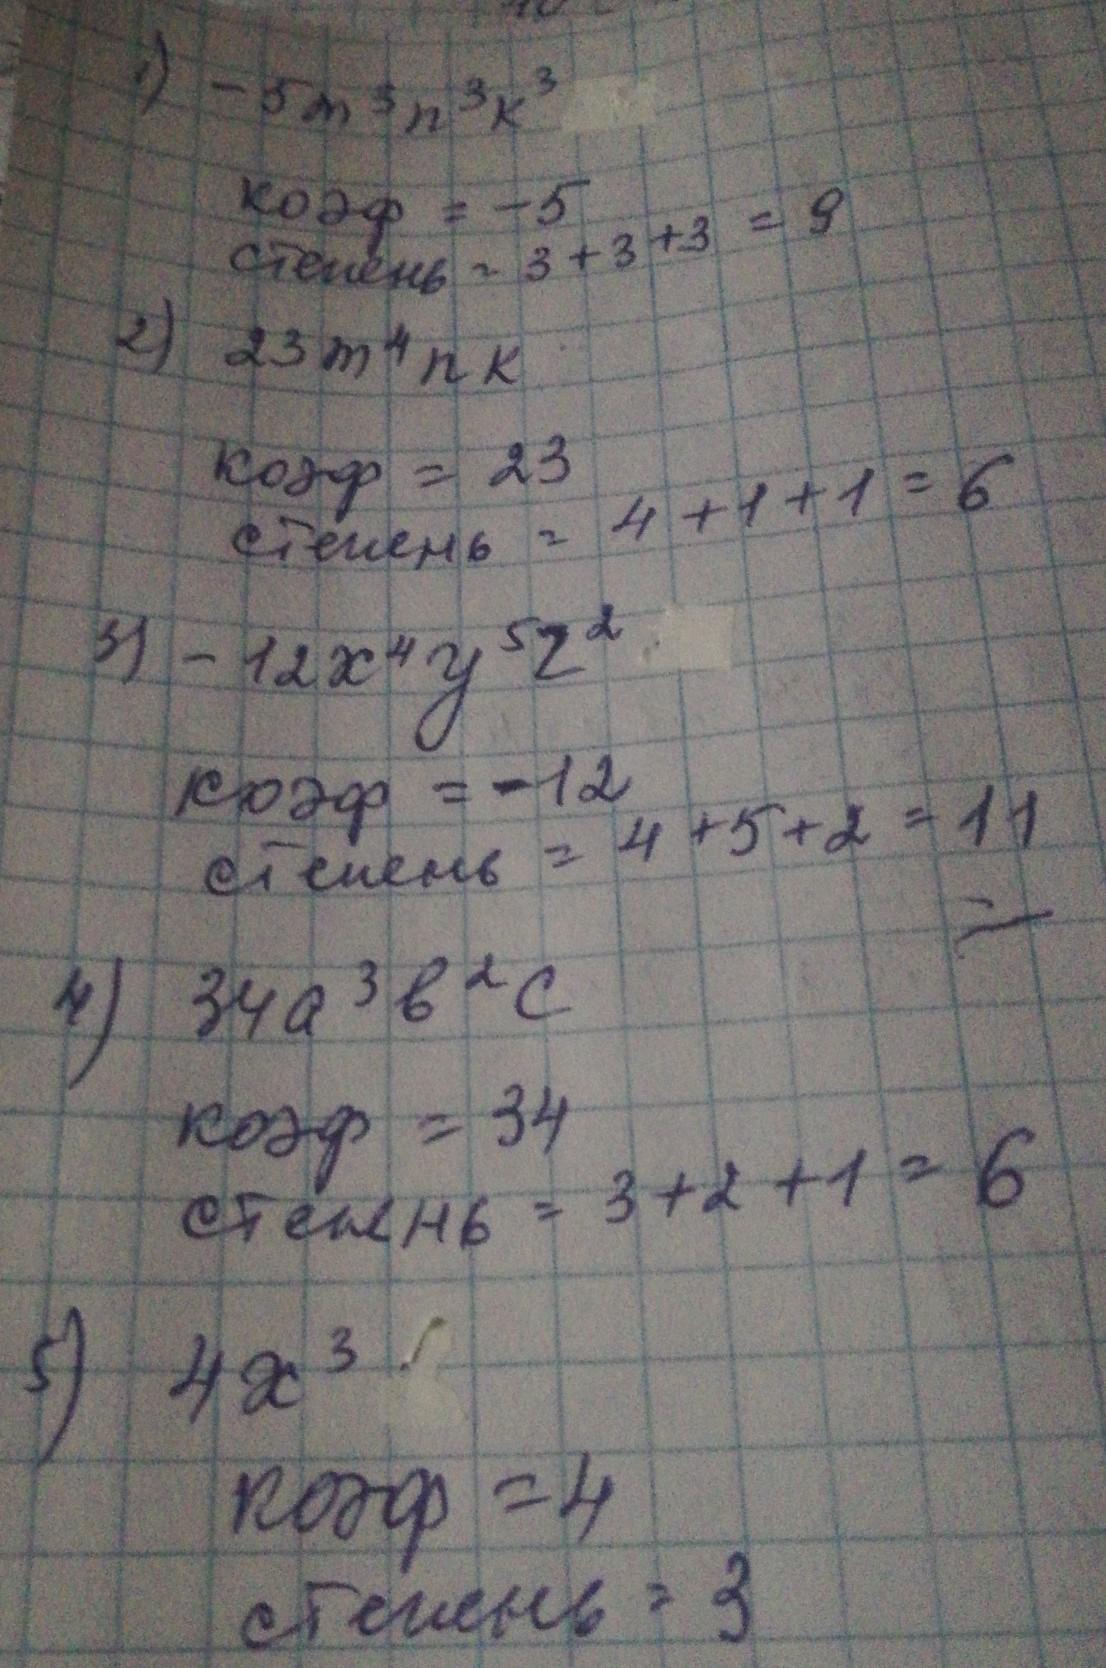 1) -5m³n³k³
коэф = -5
степень = 3+3+3 = 9
2) 23m⁴nk
коэф = 23
степень = 4+1+1 = 6
3) -12x⁴y⁵z²
коэф = -12
степень = 4+5+2 = 11
4) 34a³b²c
коэф = 34
степень = 3+2+1 = 6
5) 4x³
коэф = 4
степень = 3